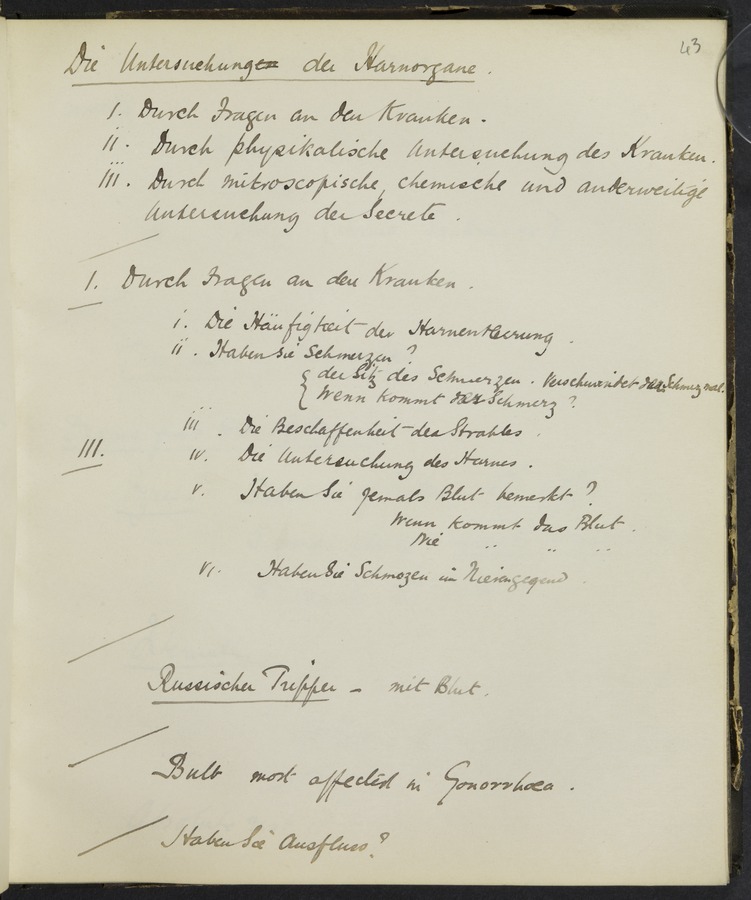 43
Die Untersuchung der Harnorgane.
I. Durch Fragen an den Kranken.
II. Durch physikalische Untersuchung des Kranken.
III. Durch mikroscopische, chemische und anderweitige
Untersuchung der Secrete.
I. Durch Fragen an den Kranken.
i. Die Häufigkeit der Harnentleerung.
ii. Haben Sie Schmerzen?
der Sitz des Schmerzen. Verschwindet der Schmerz mal.
Wenn kommt der Schmerz?
iii. Die Beschaffenheit des Strahles.
III.
iv. Die Untersuchung des Harnes.
v. Haben Sie jemals Blut bemerkt?
Wenn kommt das Blut.
Wie " " "
vi. Haben Sie Schmerzen in Nierengegend.
Russischer Tripper – mit Blut.
Bulb most affected in Gonorrhoea.
Haben Sie Ausfluss?